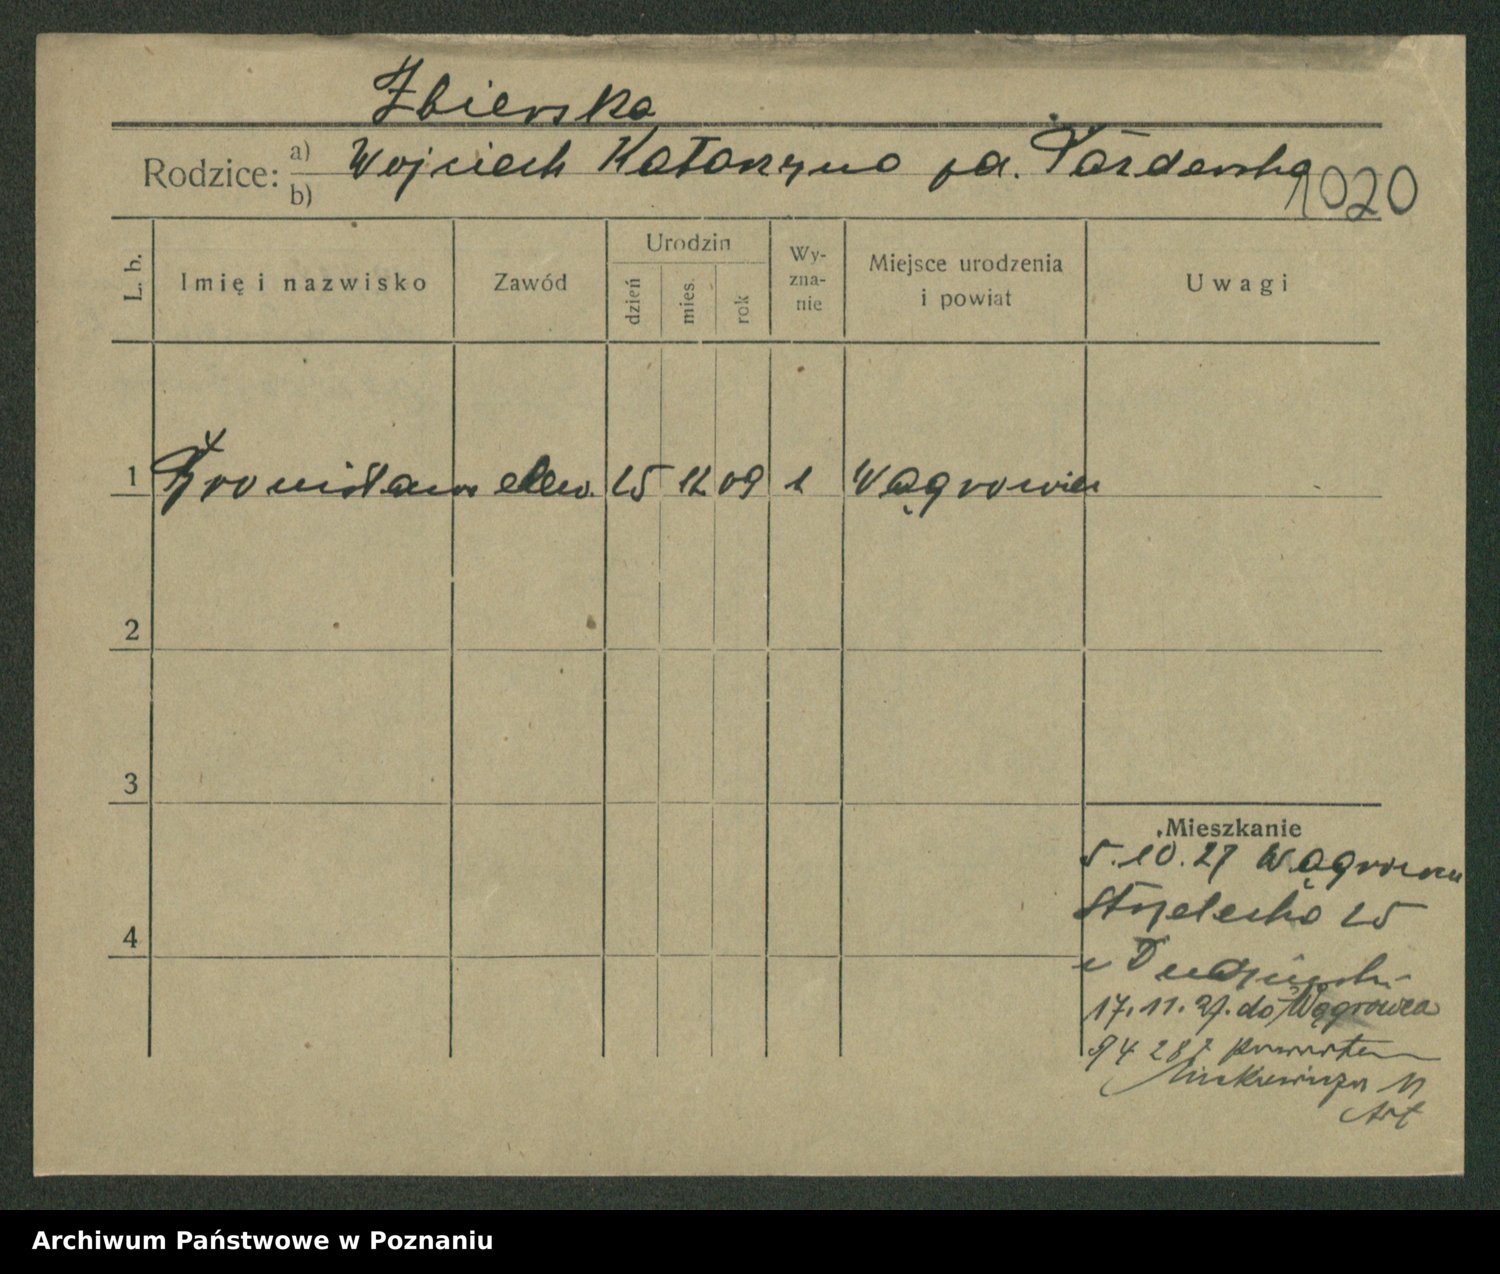 Zbierska
Rodzice: a) b) Wojciech Katarzyna pd. Paźderska
1020
L. b. Imię i nazwisko Zawód Urodzin dzień mies. rok Wy-zna-nie Miejsce urodzenia i powiat Uwagi
1 Bronisława 25 12 09 Wągrowiec
2
3
4
Mieszkanie
5.10.27 Wągrowca
Strzelecka 25
17.11.27. do Wągrowca
Archiwum Państwowe w Poznaniu